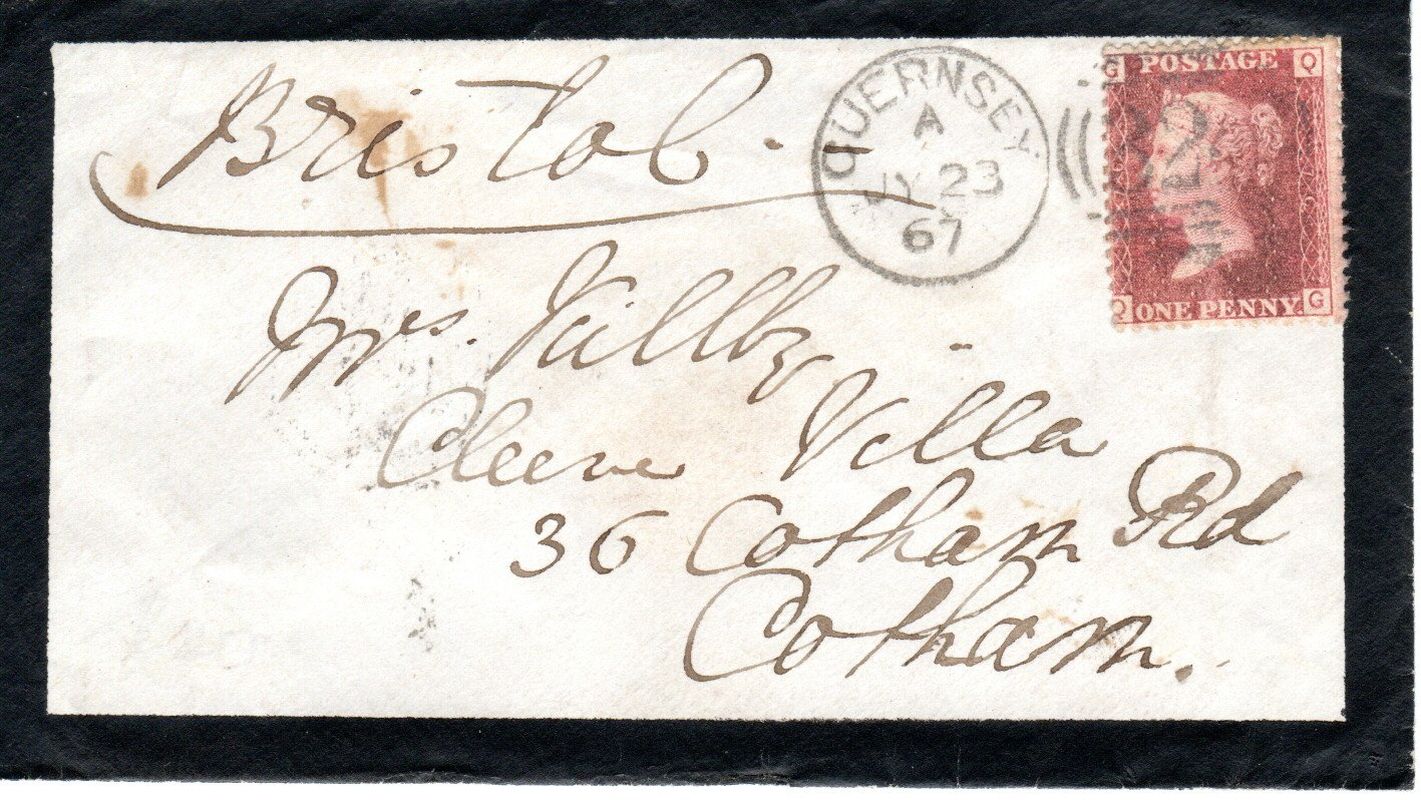 Bristol.
GUERNSEY
A
JY 23
67
G POSTAGE Q
Q ONE PENNY. G
Mrs.
Cleeve Villa
36 Cotham Rd
Cotham.